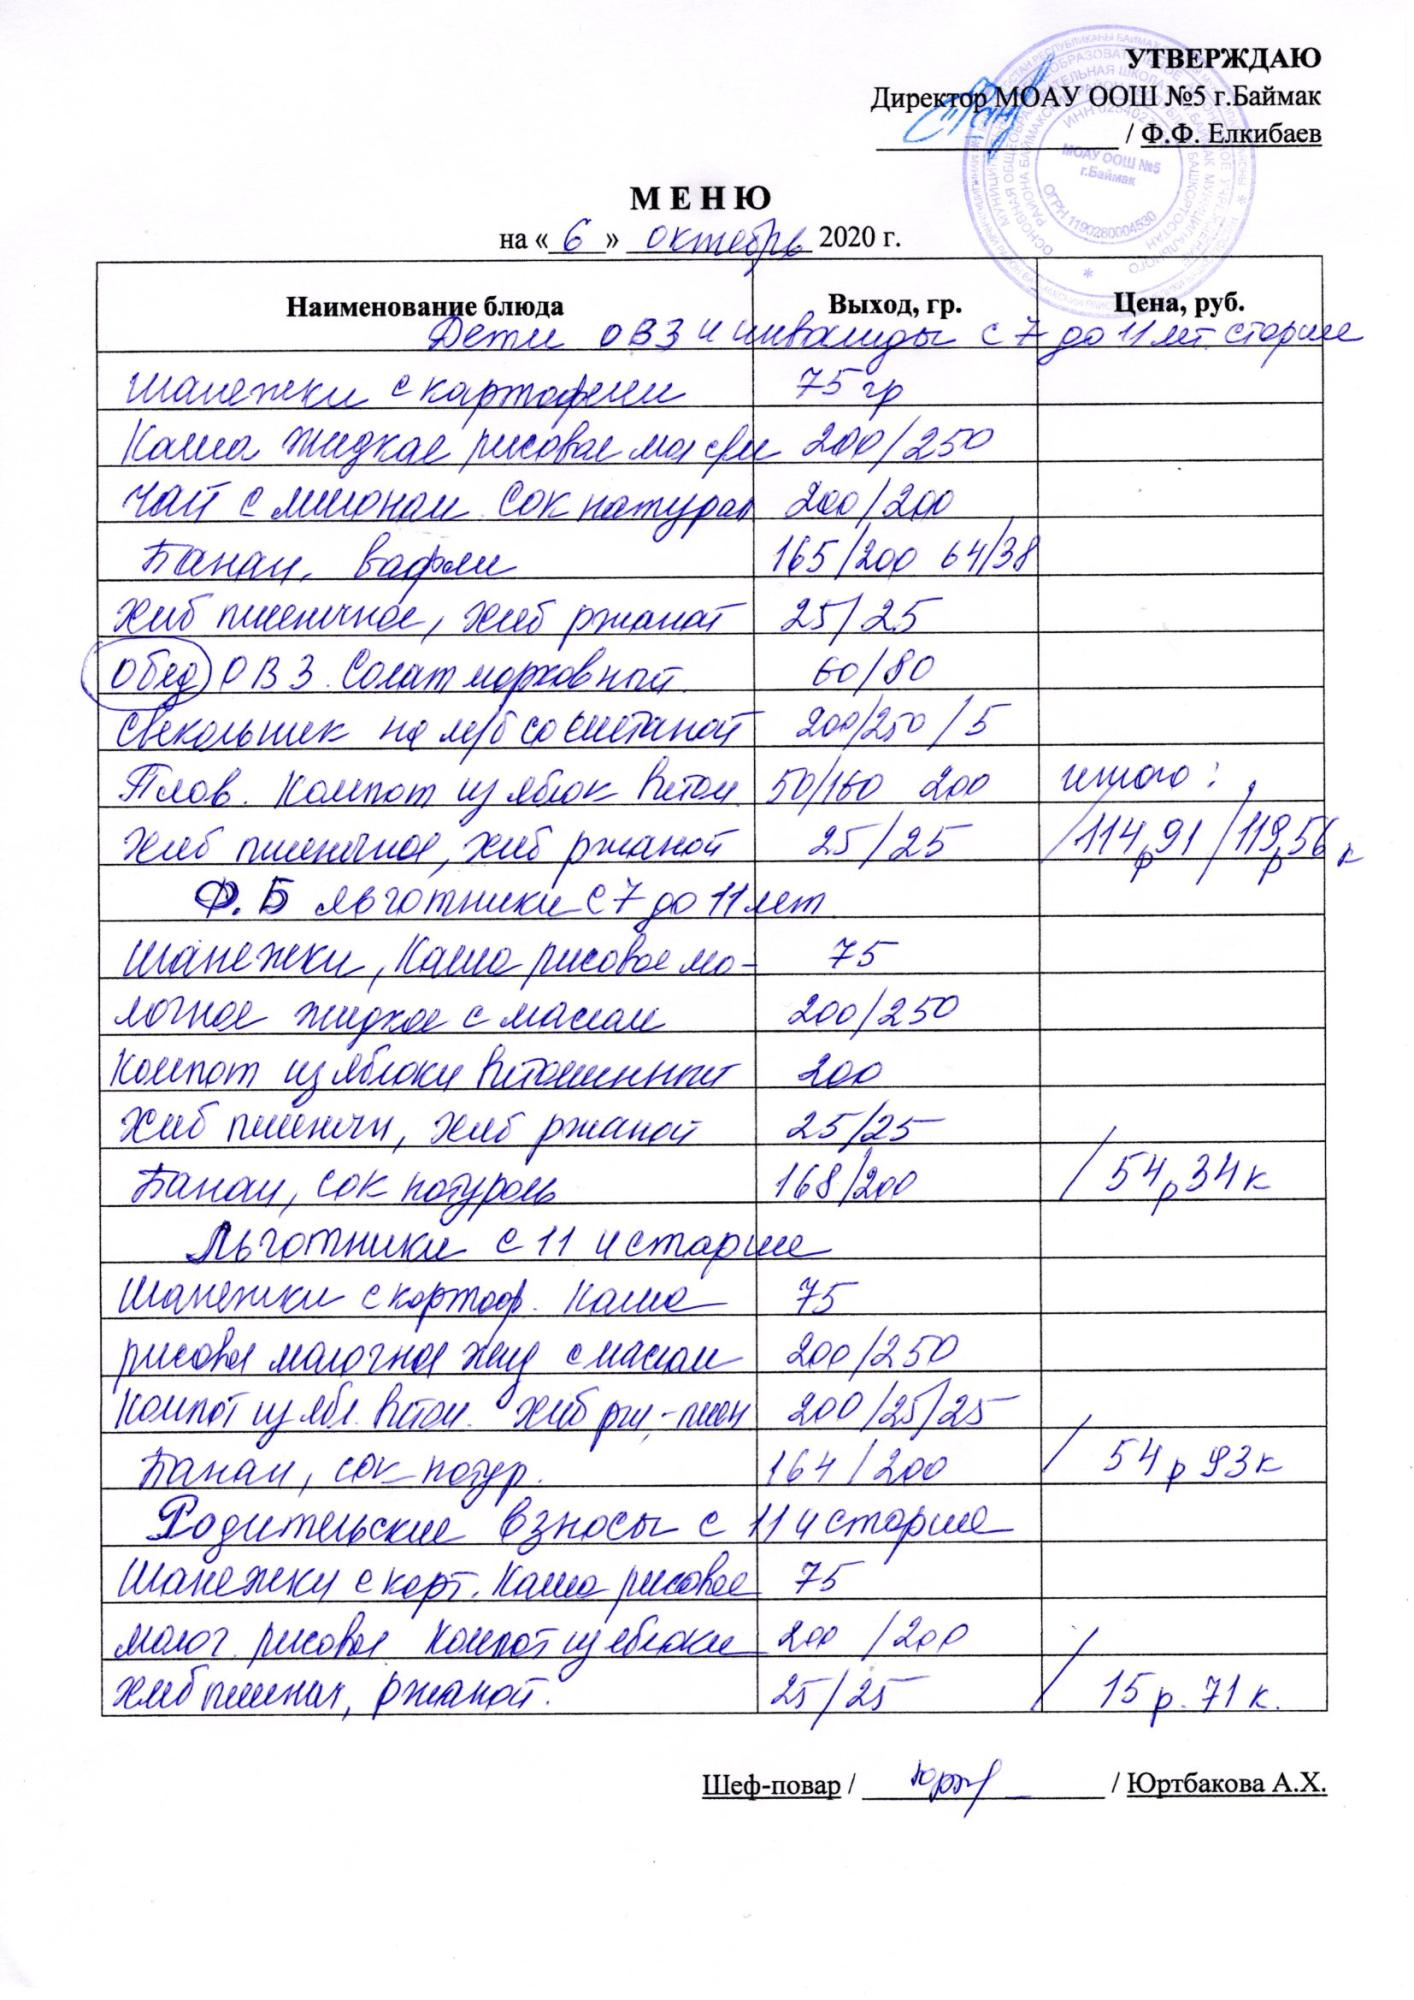 УТВЕРЖДАЮ
Директор МОАУ ООШ №5 г.Баймак
/ Ф.Ф. Елкибаев
МОАУ ООШ №5
г.Баймак
ОГРН 1190280004530
МЕНЮ
на «6» октябрь 2020 г.
Наименование блюда Выход, гр. Цена, руб.
Дети ОВЗ и инвалиды с 7 до 11 лет старше
Шанежки с картофелем 75 гр
Каша жидкая рисовая мол 200/250
Чай с лимоном Сок натурал 200/200
Банан, вафли 165/200 64/38
Хлеб пшеничное, хлеб ржаной 25/25
Обед ОВЗ. Салат морковный. 60/80
Свекольник на м/б со сметаной 200/250/5
Плов. Компот из яблок витам. 50/160 200 итого:
Хлеб пшеничное, хлеб ржаной 25/25 /114р91 /119р56к
Ф.Б льготники с 7 до 11 лет
Шанежки, Каша рисовая мо- 75
лочное жидкое с маслом 200/250
Компот из яблоки витаминный 200
Хлеб пшеничн, хлеб ржаной 25/25
Банан, сок натураль 168/200 / 54р34к
Льготники с 11 и старше
Шанежки с картоф. Каша 75
рисовая молочная жид с маслом 200/250
Компот из ябл. витам. Хлеб рж,-пшен 200/25/25
Банан, сок натур. 164/200 / 54р93к
Родительские взносы с 11 и старше
Шанежки с карт. Каша рисовое 75
молоч. рисовая Компот из яблоки 200/200
Хлеб пшенич, ржаной. 25/25 / 15р.71к.
Шеф-повар / / Юртбакова А.Х.